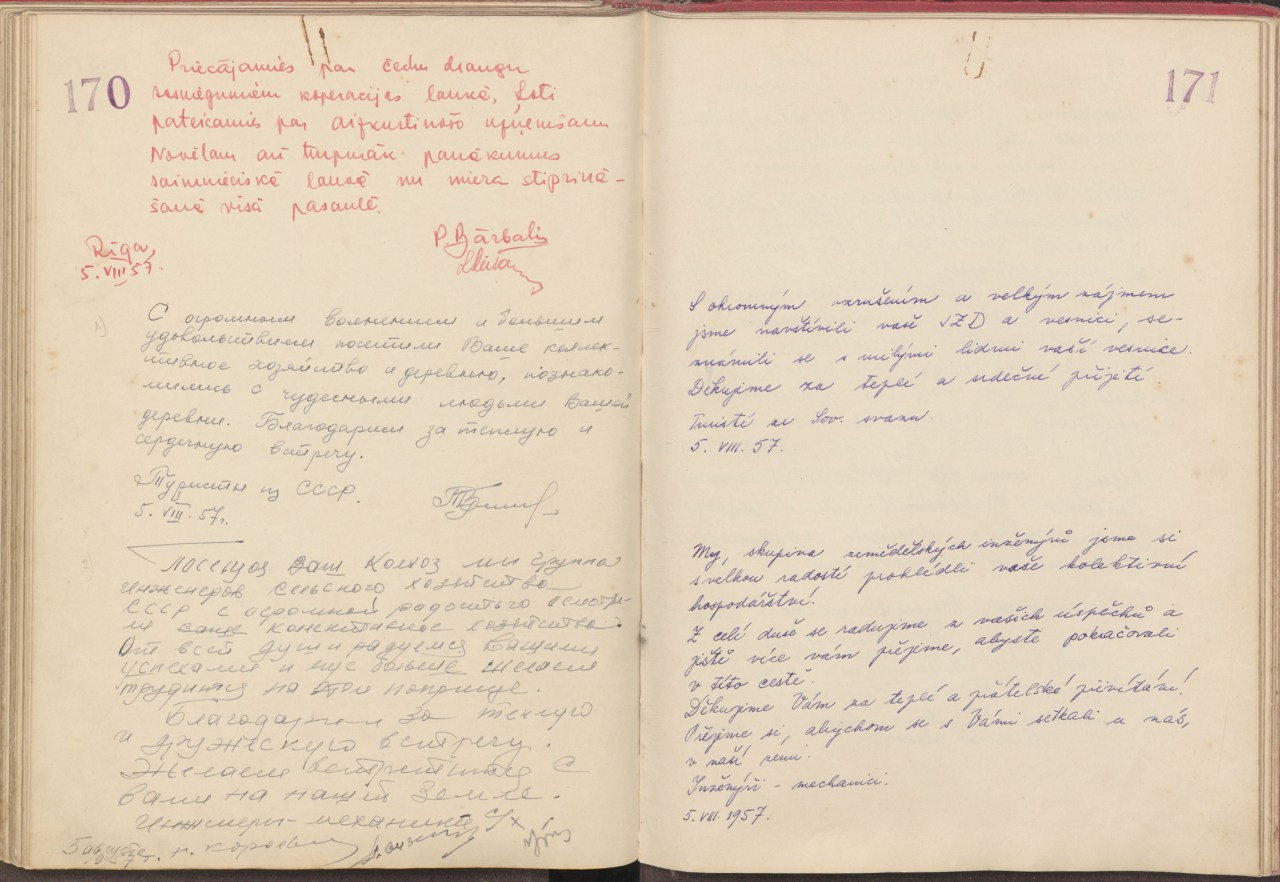 170
Priecājamies par čechu draugu
sasniegumiem koperacijas laukā, Ļoti
pateicamies par aizkustinošo uzņemšanu
Novēlam arī turpmāk panākumus
saimnieciskā laukā un miera stiprinā-
šanā visā pasaulē.
Rīga,
5. VIII 57.
P. Bārbalis
1)
С огромным волнением и большим
удовольствием посетили Ваше коллек-
тивное хозяйство и деревню, познако-
мились с чудесными людьми Вашей
деревни. Благодарим за теплую и
сердечную встречу.
Туристы из СССР.
5. VIII. 57г.
2)
Посещая Ваш Колхоз мы группа
инженеров Сельского хозяйства
СССР с огромной радостью осмотре-
ли ваше коллективное хозяйство.
От всей души радуемся Вашими
успехами и еще больше желаем
трудится на этом поприще.
Благодарим За теплую
и дружескую встречу.
Желаем встретиться с
вами на нашей Земле.
Инженеры-механики с/х
5 августа
171
S ohromným vzrušením a velkým zájmem
jsme navštívili vaše JZD a vesnici, se-
známili se s milými lidmi vaší vesnice.
Děkujeme za teplé a srdečné přijetí.
Turisté ze Sov. svazu.
5. VIII. 57.
My, skupina zemědělských inženýrů jsme si
s velkou radostí prohlédli vaše kolektivní
hospodářství.
Z celé duše se radujeme z vašich úspěchů a
ještě více vám přejeme, abyste pokračovali
v této cestě.
Děkujeme Vám za teplé a přátelské přivítání!
Přejeme si, abychom se s Vámi setkali u nás,
v naší zemi.
Inženýři - mechanici.
5. VIII. 1957.